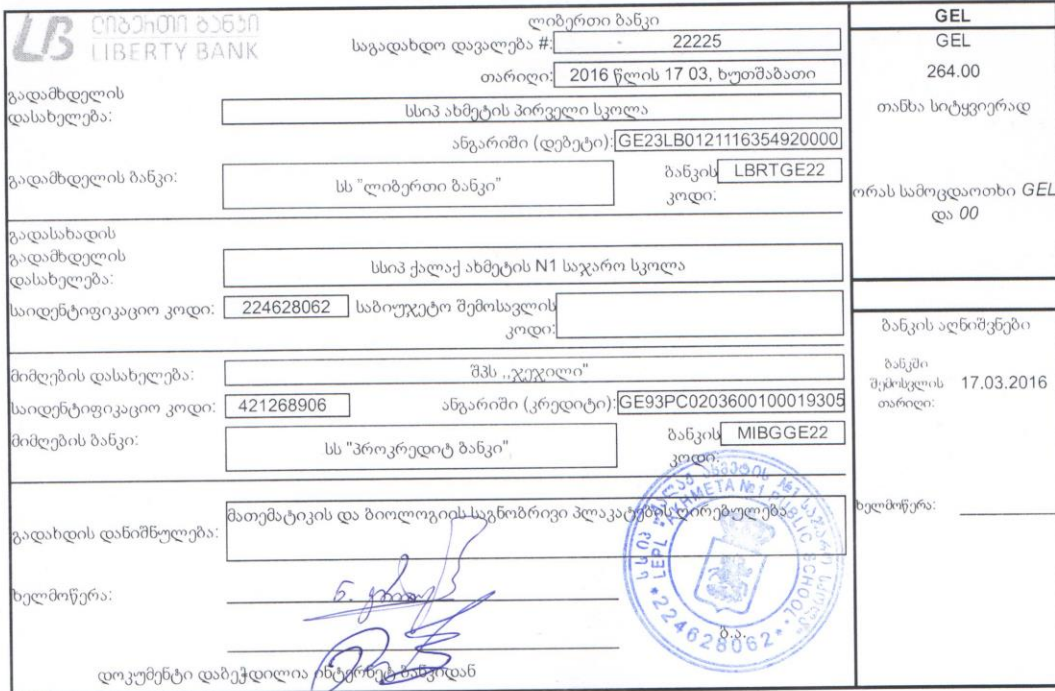 ლიბერთი ბანკი
LIBERTY BANK
ლიბერთი ბანკი
საგადახდო დავალება #: 22225
თარიღი: 2016 წლის 17 03, ხუთშაბათი
გადამხდელის
დასახელება: სსიპ ახმეტის პირველი სკოლა
ანგარიში (დებეტი): GE23LB0121116354920000
გადამხდელის ბანკი: სს "ლიბერთი ბანკი" ბანკის კოდი: LBRTGE22
გადასახადის
გადამხდელის
დასახელება: სსიპ ქალაქ ახმეტის N1 საჯარო სკოლა
საიდენტიფიკაციო კოდი: 224628062 საბიუჯეტო შემოსავლის
კოდი:
მიმღების დასახელება: შპს ,,ჯეჯილი"
საიდენტიფიკაციო კოდი: 421268906 ანგარიში (კრედიტი): GE93PC0203600100019305
მიმღების ბანკი: სს "პროკრედიტ ბანკი" ბანკის კოდი: MIBGGE22
გადახდის დანიშნულება: მათემატიკის და ბიოლოგიის საგნობრივი პლაკატების ღირებულება
ხელმოწერა:
ბ.ა.
დოკუმენტი დაბეჭდილია ინტერნეტ ბანკიდან
სსიპ "ქალაქ ახმეტის №1 საჯარო სკოლა"
LEPL AKHMETA №1 PUBLIC SCHOOL
224628062
GEL
GEL
264.00
თანხა სიტყვიერად
ორას სამოცდაოთხი GEL
და 00
ბანკის აღნიშვნები
ბანკში
შემოსვლის 17.03.2016
თარიღი:
ხელმოწერა: